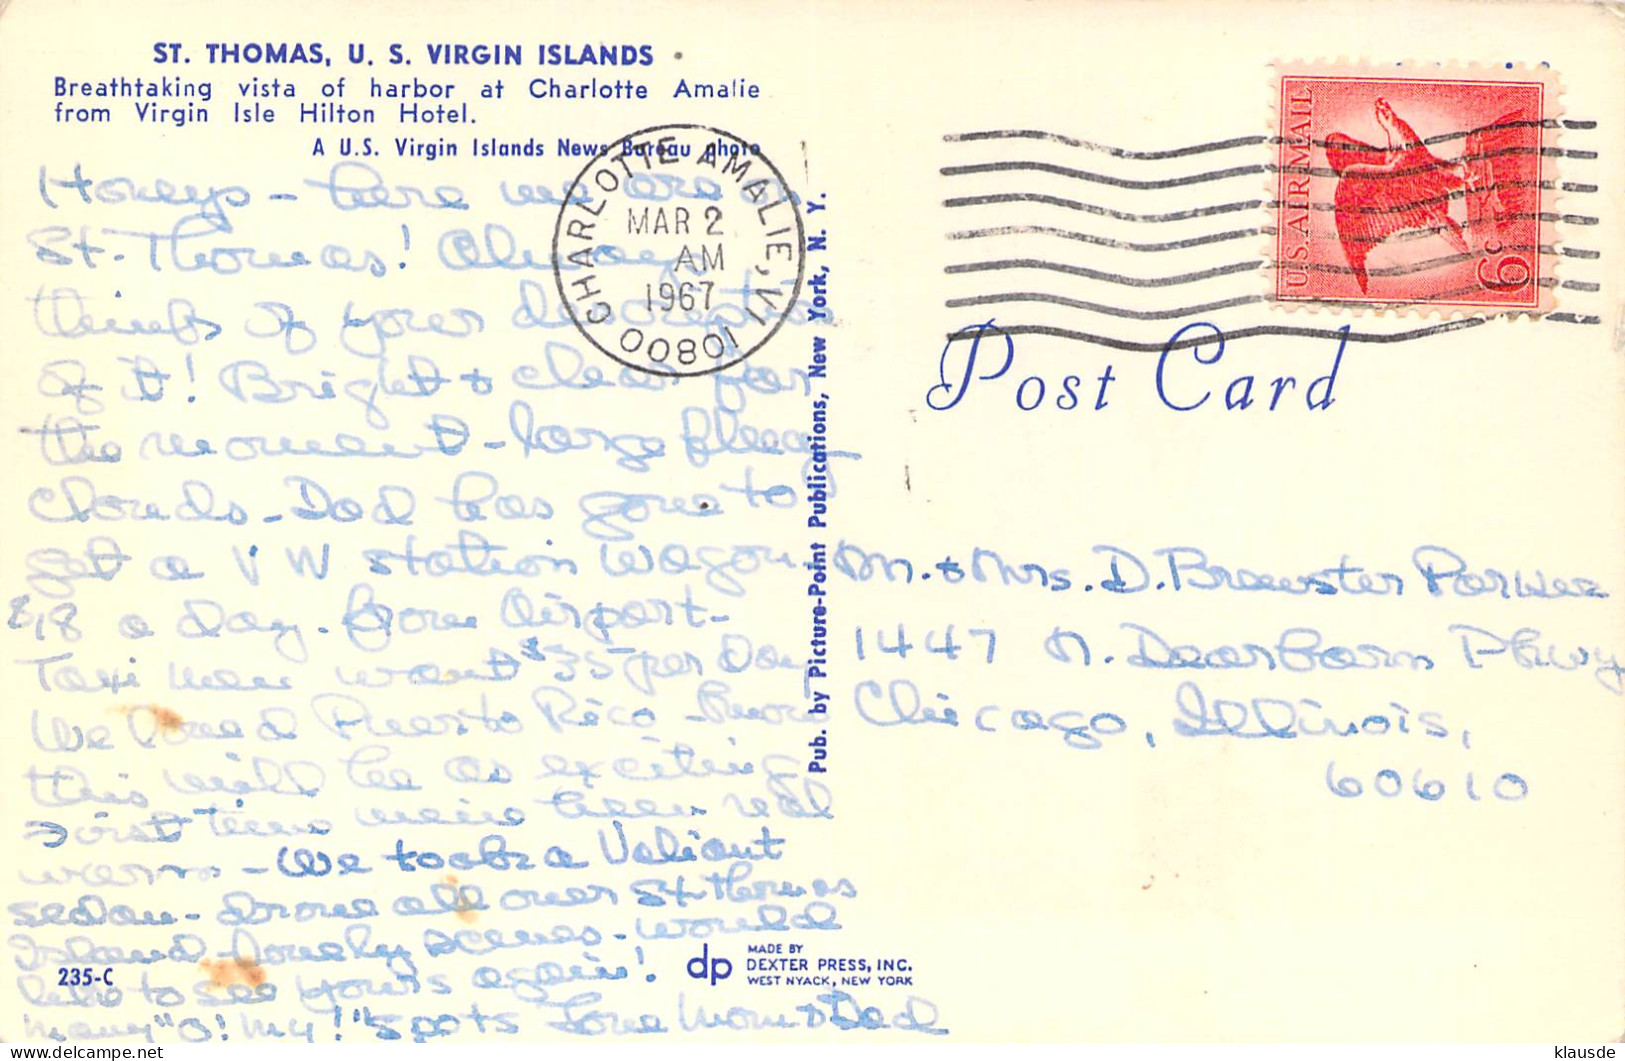 ST. THOMAS, U. S. VIRGIN ISLANDS
Breathtaking vista of harbor at Charlotte Amalie
from Virgin Isle Hilton Hotel.
A U.S. Virgin Islands News Bureau photo
Honeys - here we are
St. Thomas! Always
think of your description
of it! Bright & clear for
the moment - large fleecy
clouds - Dad has gone to
get a VW station wagon
$18 a day - from Airport -
Taxi men want $35 per Day
We loved Puerto Rico -
this will be as exciting
First time we've been real
warm - We took a Valiant
sedan - drove all over St Thomas
Island - lovely scenes - would
like to see yours again!
Many "O! My!" spots Love Mom & Dad
CHARLOTTE AMALIE, VI 00801
MAR 2
AM
1967
U.S. AIR MAIL
6c
Post Card
Pub. by Picture-Point Publications, New York, N. Y.
Mr. & Mrs. D. Brewster Parker
1447 N. Dearborn Pkwy
Chicago, Illinois,
60610
235-C
dp
MADE BY
DEXTER PRESS, INC.
WEST NYACK, NEW YORK
klausde